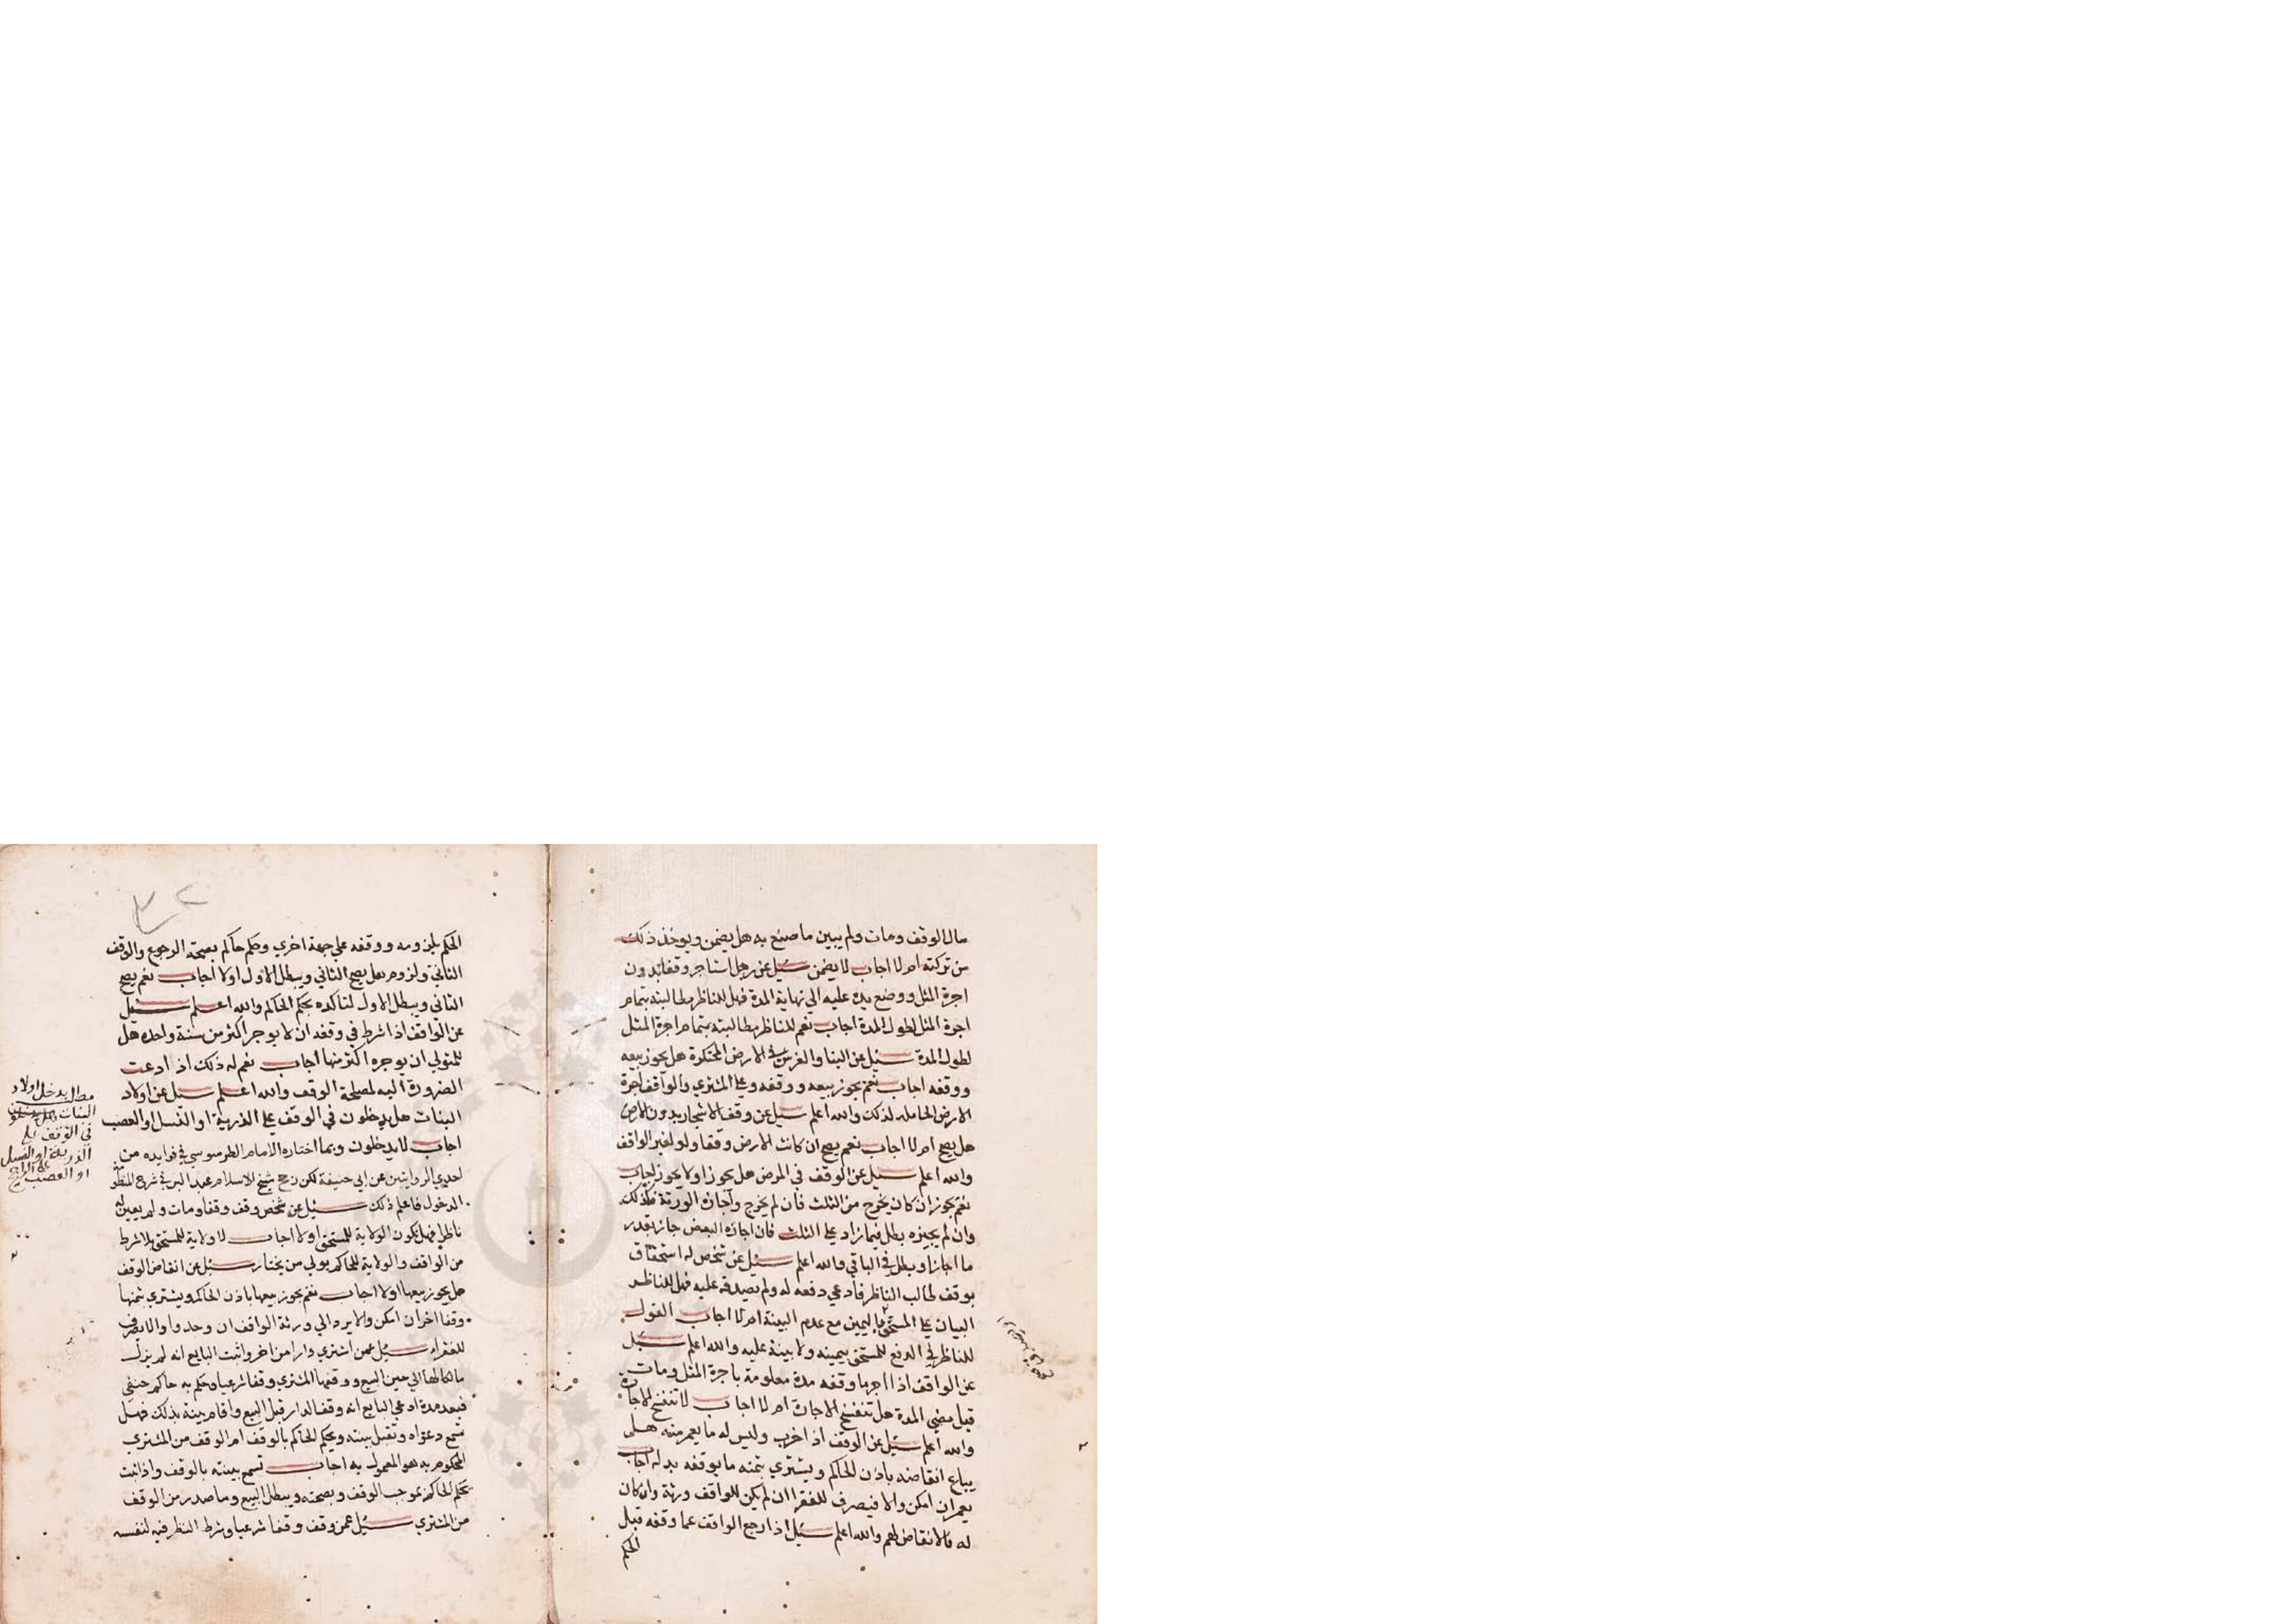 مال الوقف ومات ولم يبين ما صنع به هل يضمن ويوخذ ذلك
من تركته ام لا اجاب لا يضمن سئيل عن رجل استاجر وقفا بدون
اجرة المثل ووضع يده عليه الي نهاية المدة فهل للناظر مطالبته بتمام
اجرة المثل لطول المدة اجاب نعم للناظر مطالبته بتمام اجرة المثل
لطول المدة سئيل عن البنا والغرس في الارض المحتكرة هل يجوز بيعه
ووقفه اجاب نعم يجوز بيعه ووقفه وعلي المشتري والواقف اجرة
الارض الحامله لذلك والله اعلم سئيل عن وقف الاشجار بدون الارض
هل يصح ام لا اجاب نعم يصح ان كانت الارض وقفا ولو لغير الواقف
والله اعلم سئيل عن الوقف في المرض هل يجوز اولا يجوز اجاب
نعم يجوز ان كان يخرج من الثلث فان لم يخرج واجازه الورثة فكذلك
وان لم يجيزه بطل فيما زاد علي الثلث فان اجازه البعض جاز بقدر
ما اجاز وبطل في الباقي والله اعلم سئيل عن شخص له استحقاق
بوقف طالب الناظر فادعي دفعه له ولم يصدقه عليه فهل للناظر
البيان علي المستحق باليمين مع عدم البينة ام لا اجاب القول
للناظر في الدفع للمستحق بيمينه ولا بينة عليه والله اعلم سئيل
عن الواقف اذا اجر ما وقفه مدة معلومة باجرة المثل ومات
قبل مضي المدة هل تنفسخ الاجارة ام لا اجاب لا تنفسخ الاجارة
والله اعلم سئيل عن الوقف اذ اخرب وليس له ما يعمر منه هل
يباع انقاضه باذن الحاكم ويشتري بثمنه ما يوقفه بدله اجاب
يعمر ان امكن والا فيصرف للفقرا ان لم يكن للواقف ورثة وان كان
له فالانقاض لهم والله اعلم سئيل اذا رجع الواقف عما وقفه قبل
الحكم
٣٢
الحكم بلزومه ووقفه علي جهة اخري وحكم حاكم بصحة الرجوع والوقف
الثاني ولزومه هل يصح الثاني ويبطل الاول اولا اجاب نعم يصح
الثاني ويبطل الاول لتاكده بحكم الحاكم والله اعلم سئيل
عن الواقف اذا شرط في وقفه ان لا يوجر اكثر من سنة واحده هل
للمتولي ان يوجره اكثر منها اجاب نعم له ذلك اذ ادعت
الضرورة اليه لمصلحة الوقف والله اعلم سئل عن اولاد
البنات هل يدخلون في الوقف علي الذرية او النسل او العصب
اجاب لا يدخلون وبما اختاره الامام الطرسوسي في فوايده من
احدي الروايتين عن ابي حنيفة لكن رجح شيخ الاسلام عبد البر في شرح المنظومة
الدخول فاعلم ذلك سئيل عن شخص وقف وقفا ومات ولم يعين له
ناظرا فهل تكون الولاية للمستحق اولا اجاب لا ولاية للمستحق بلا شرط
من الواقف والولاية للحاكم يولي من يختار سئيل عن انقاض الوقف
هل يجوز بيعها اولا اجاب نعم يجوز بيعها باذن الحاكم ويشتري بثمنها
وقفا اخر ان امكن والا يرد الي ورثة الواقف ان وجدوا والا يصرف
للفقراء سئيل عمن اشتري دارا من اخر واثبت البايع انه لم يزل
مالكا لها الي حين البيع ووقفها المشتري وقفا شرعيا وحكم به حاكم حنفي
فبعد مدة ادعي البايع انه وقف الدار قبل البيع واقام بينة بذلك فهل
تسمع دعواه وتقبل بينته ويحكم الحاكم بالوقف ام الوقف من المشتري
المحكوم به هو المعمول به اجاب تسمع بينته بالوقف واذا ثبت
بحكم الحاكم بموجب الوقف وبصحته ويبطل البيع وما صدر من الوقف
من المشتري سئيل عمن وقف وقفا شرعيا وشرط النظر فيه لنفسه
مطلب يدخل اولاد
البنات
في الوقف علي
الذرية او النسل
او العصب علي الراجح